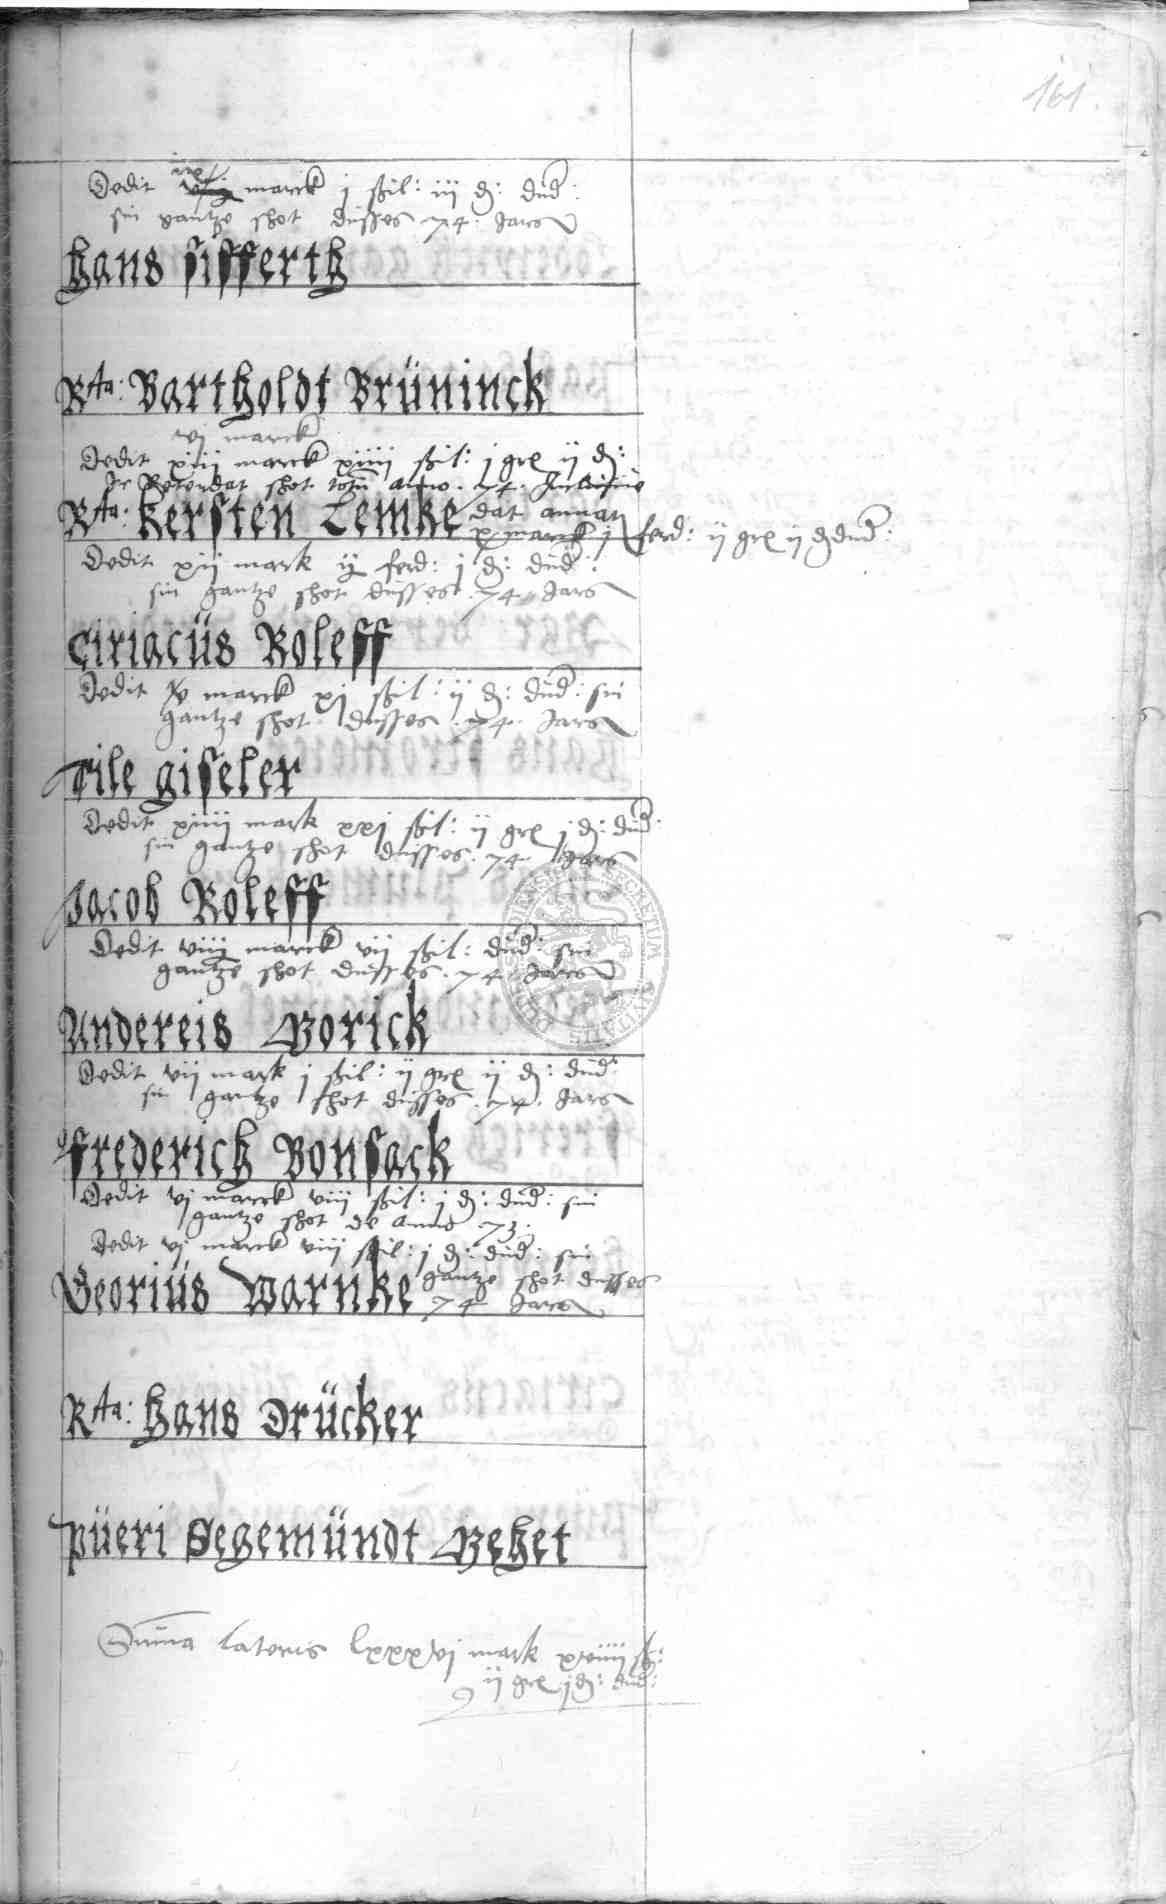 161.
Dedit marck j ßil: iij d: dud:
sin gantze shot düsses 74. Jars
Hans Sifferth
Rta: Bartholdt Brüninck
vj marck
Dedit xiij marck xiiij ßil: j gr ij d:
Retardat shot anno. 74.
Rta: Kersten Lemke dat annat
x marck j ferd: ij gr ij d dud:
Dedit xij mark ij ferd: j d: dud:
sin gantze shot düsses. 74. Jars
Ciriacüs Roleff
Dedit marck xj ßil: ij d: dud: sin
gantze shot düsses. 74. Jars
Tile Giseler
Dedit xiiij mark xxj ßil: ij gr j d: dud:
sin gantze shot düsses. 74. Jars
Jacob Roleff
Dedit viij marck vij ßil: dud: sin
gantze shot düsses. 74. Jares
SECRETUM CIVITATIS
Andereis Borick
Dedit vij mark j ßil: ij gr ij d: dud:
sin gantze shot düsses. 74. Jars
Frederich Bonsack
Dedit vj marck viij ßil: j d: dud: sin
gantze shot de Anno 73.
Dedit vj marck viij ßil: j d: dud: sin
gantze shot düsses
Georiüs Warnke 74 Jares
Rta: Hans Drücker
Püeri Segemündt Behet
Suma lateris lxxxvj mark xviiij ß:
ij gr j d: dud: